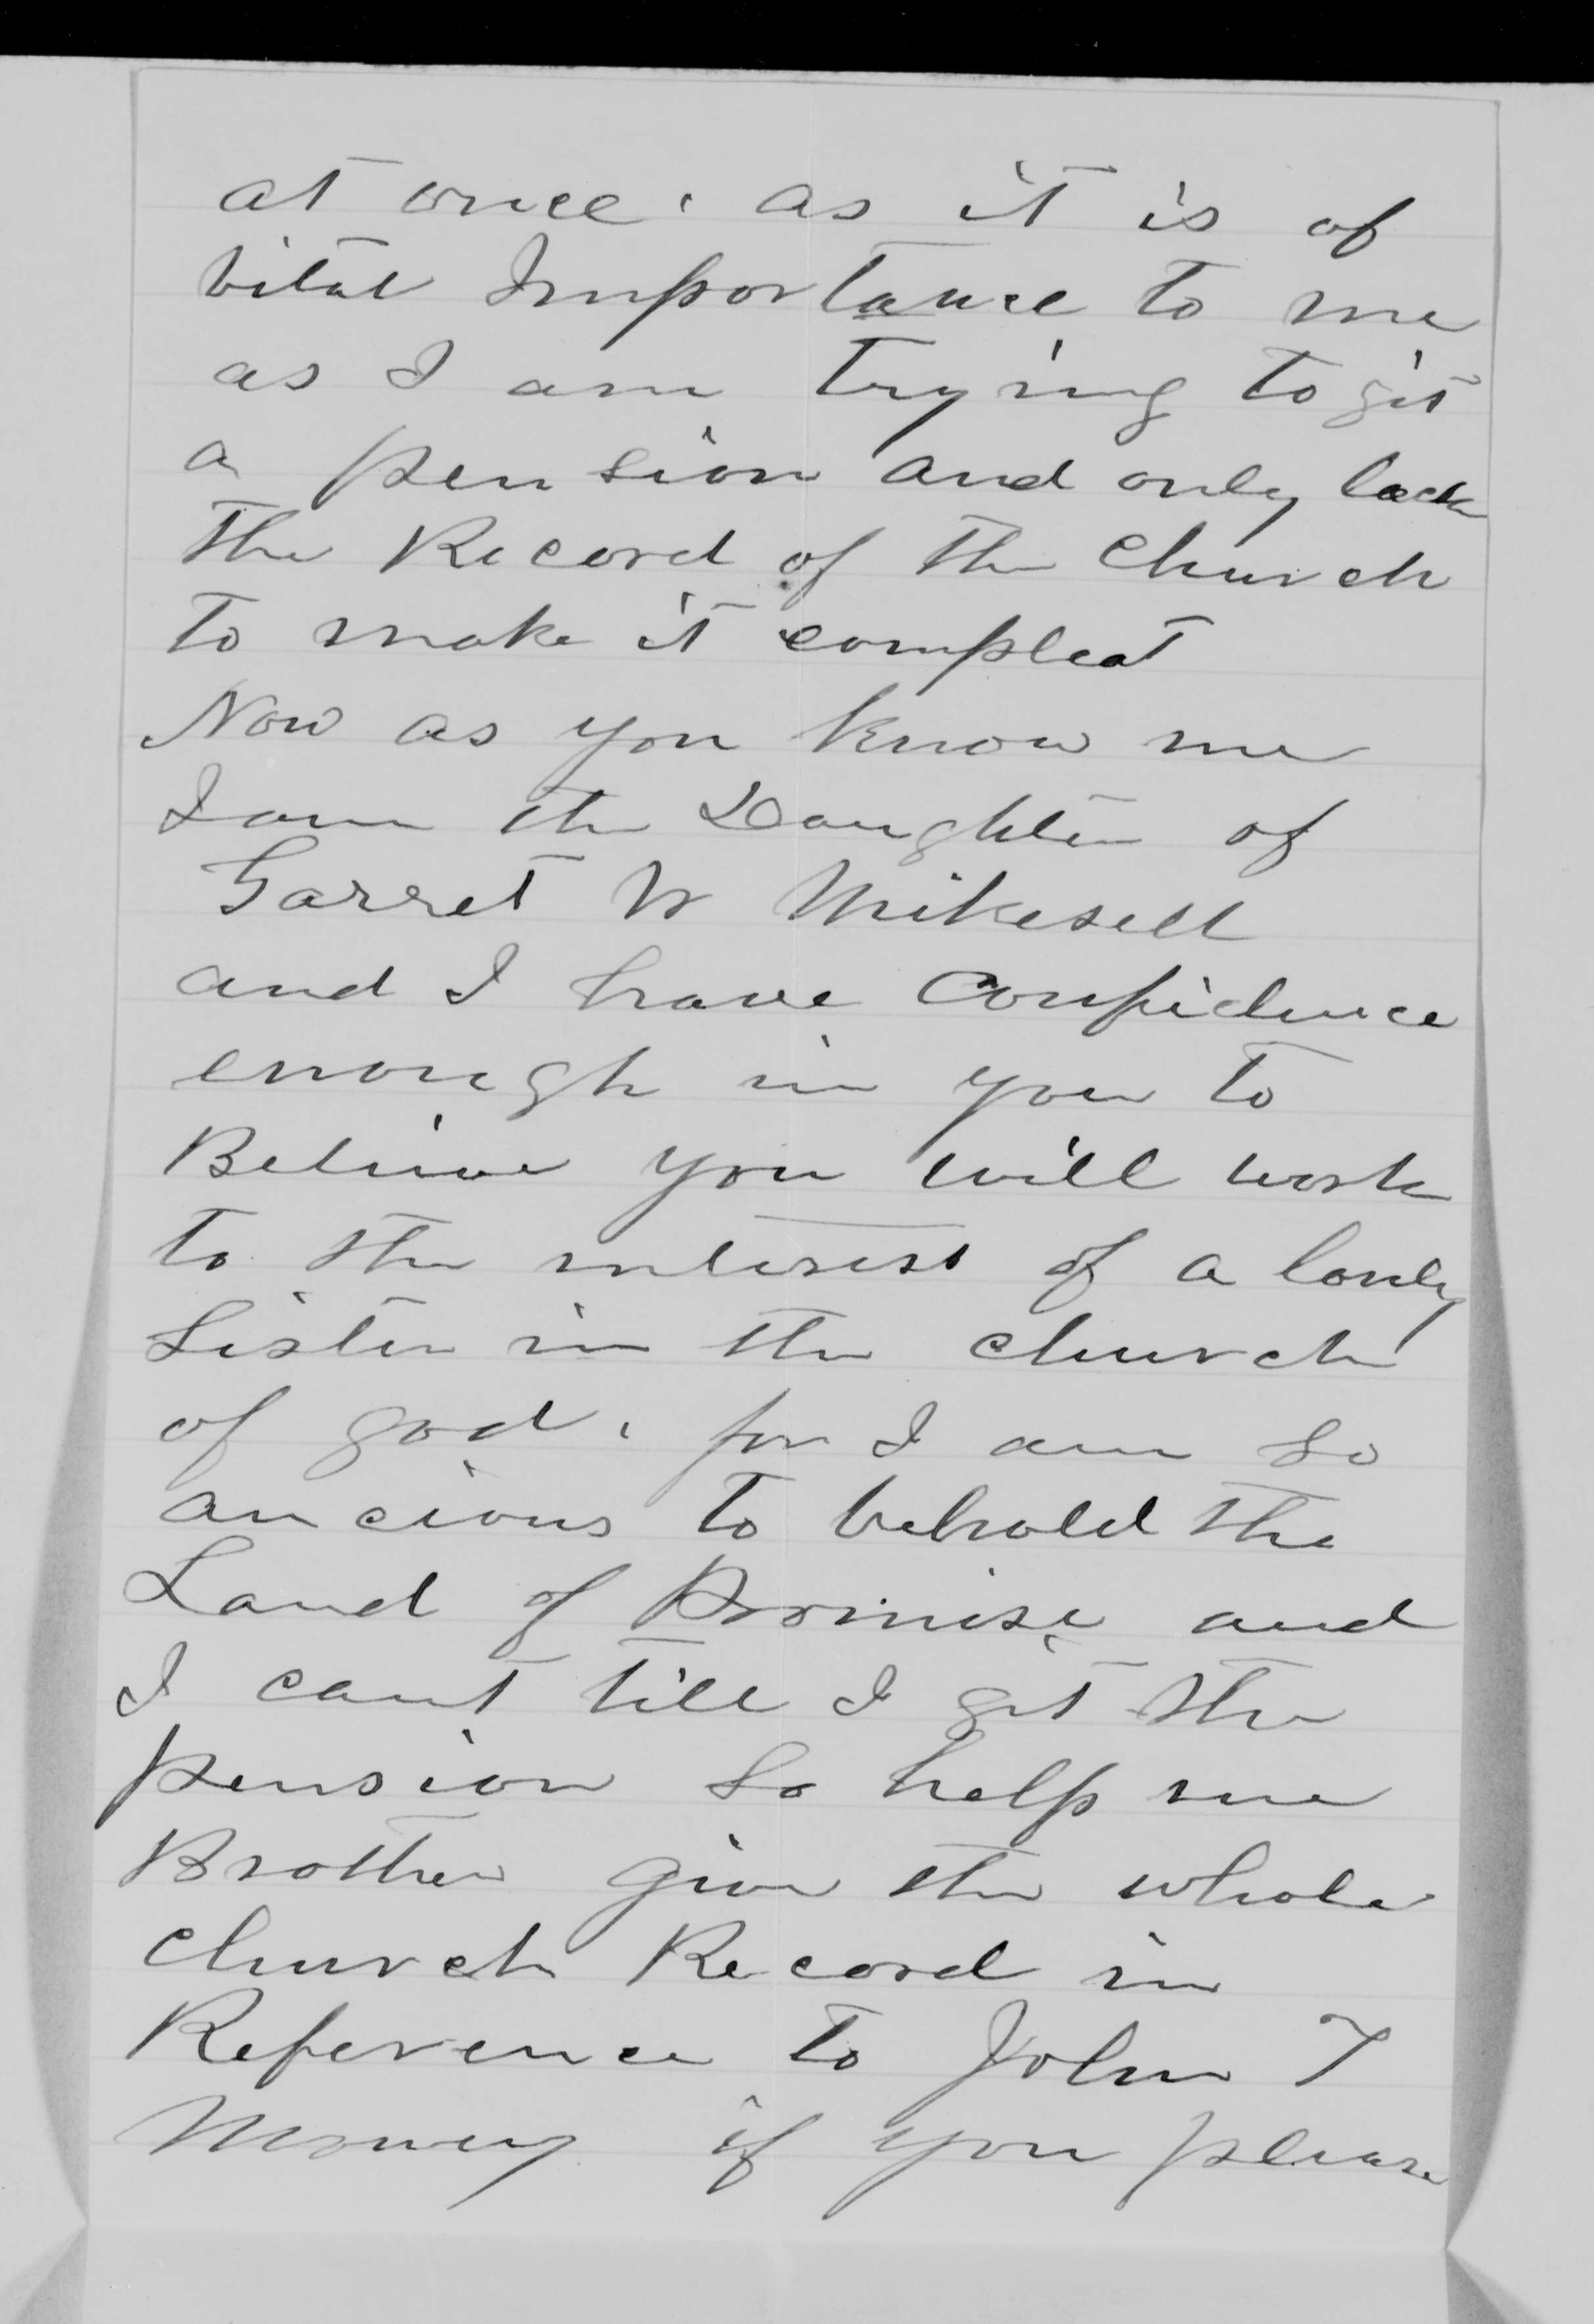 at once. as it is of
vital Importance to me
as I am trying to git
a pension and only lack
the Record of the Church
to make it compleat
Now as you know me
I am the Daughter of
Garret W Mikesell
and I have Confidence
enough in you to
Believe you will work
to the interest of a lonly
Sister in the church
of god. for I am so
ancious to behold the
Land of Promise and
I cant till I git the
pension So help me
Brother give the whole
church Record in
Reference to John T
if you please